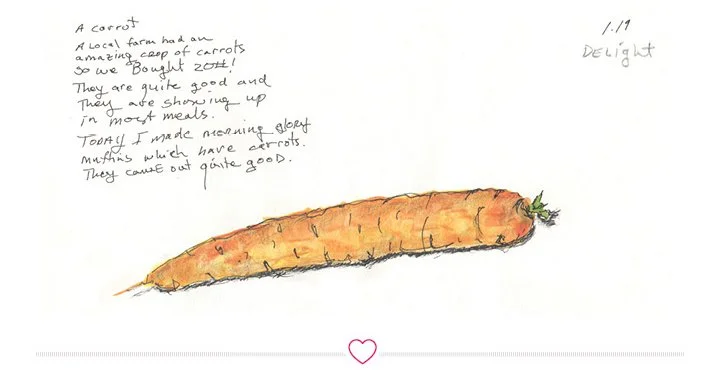 A carrot
A Local farm had an
amazing crop of carrots
so we Bought 20#!
They are quite good and
They are showing up
in most meals.
TODAY I made morning glory
muffins which have carrots.
They came out quite good.
1.19
DELight